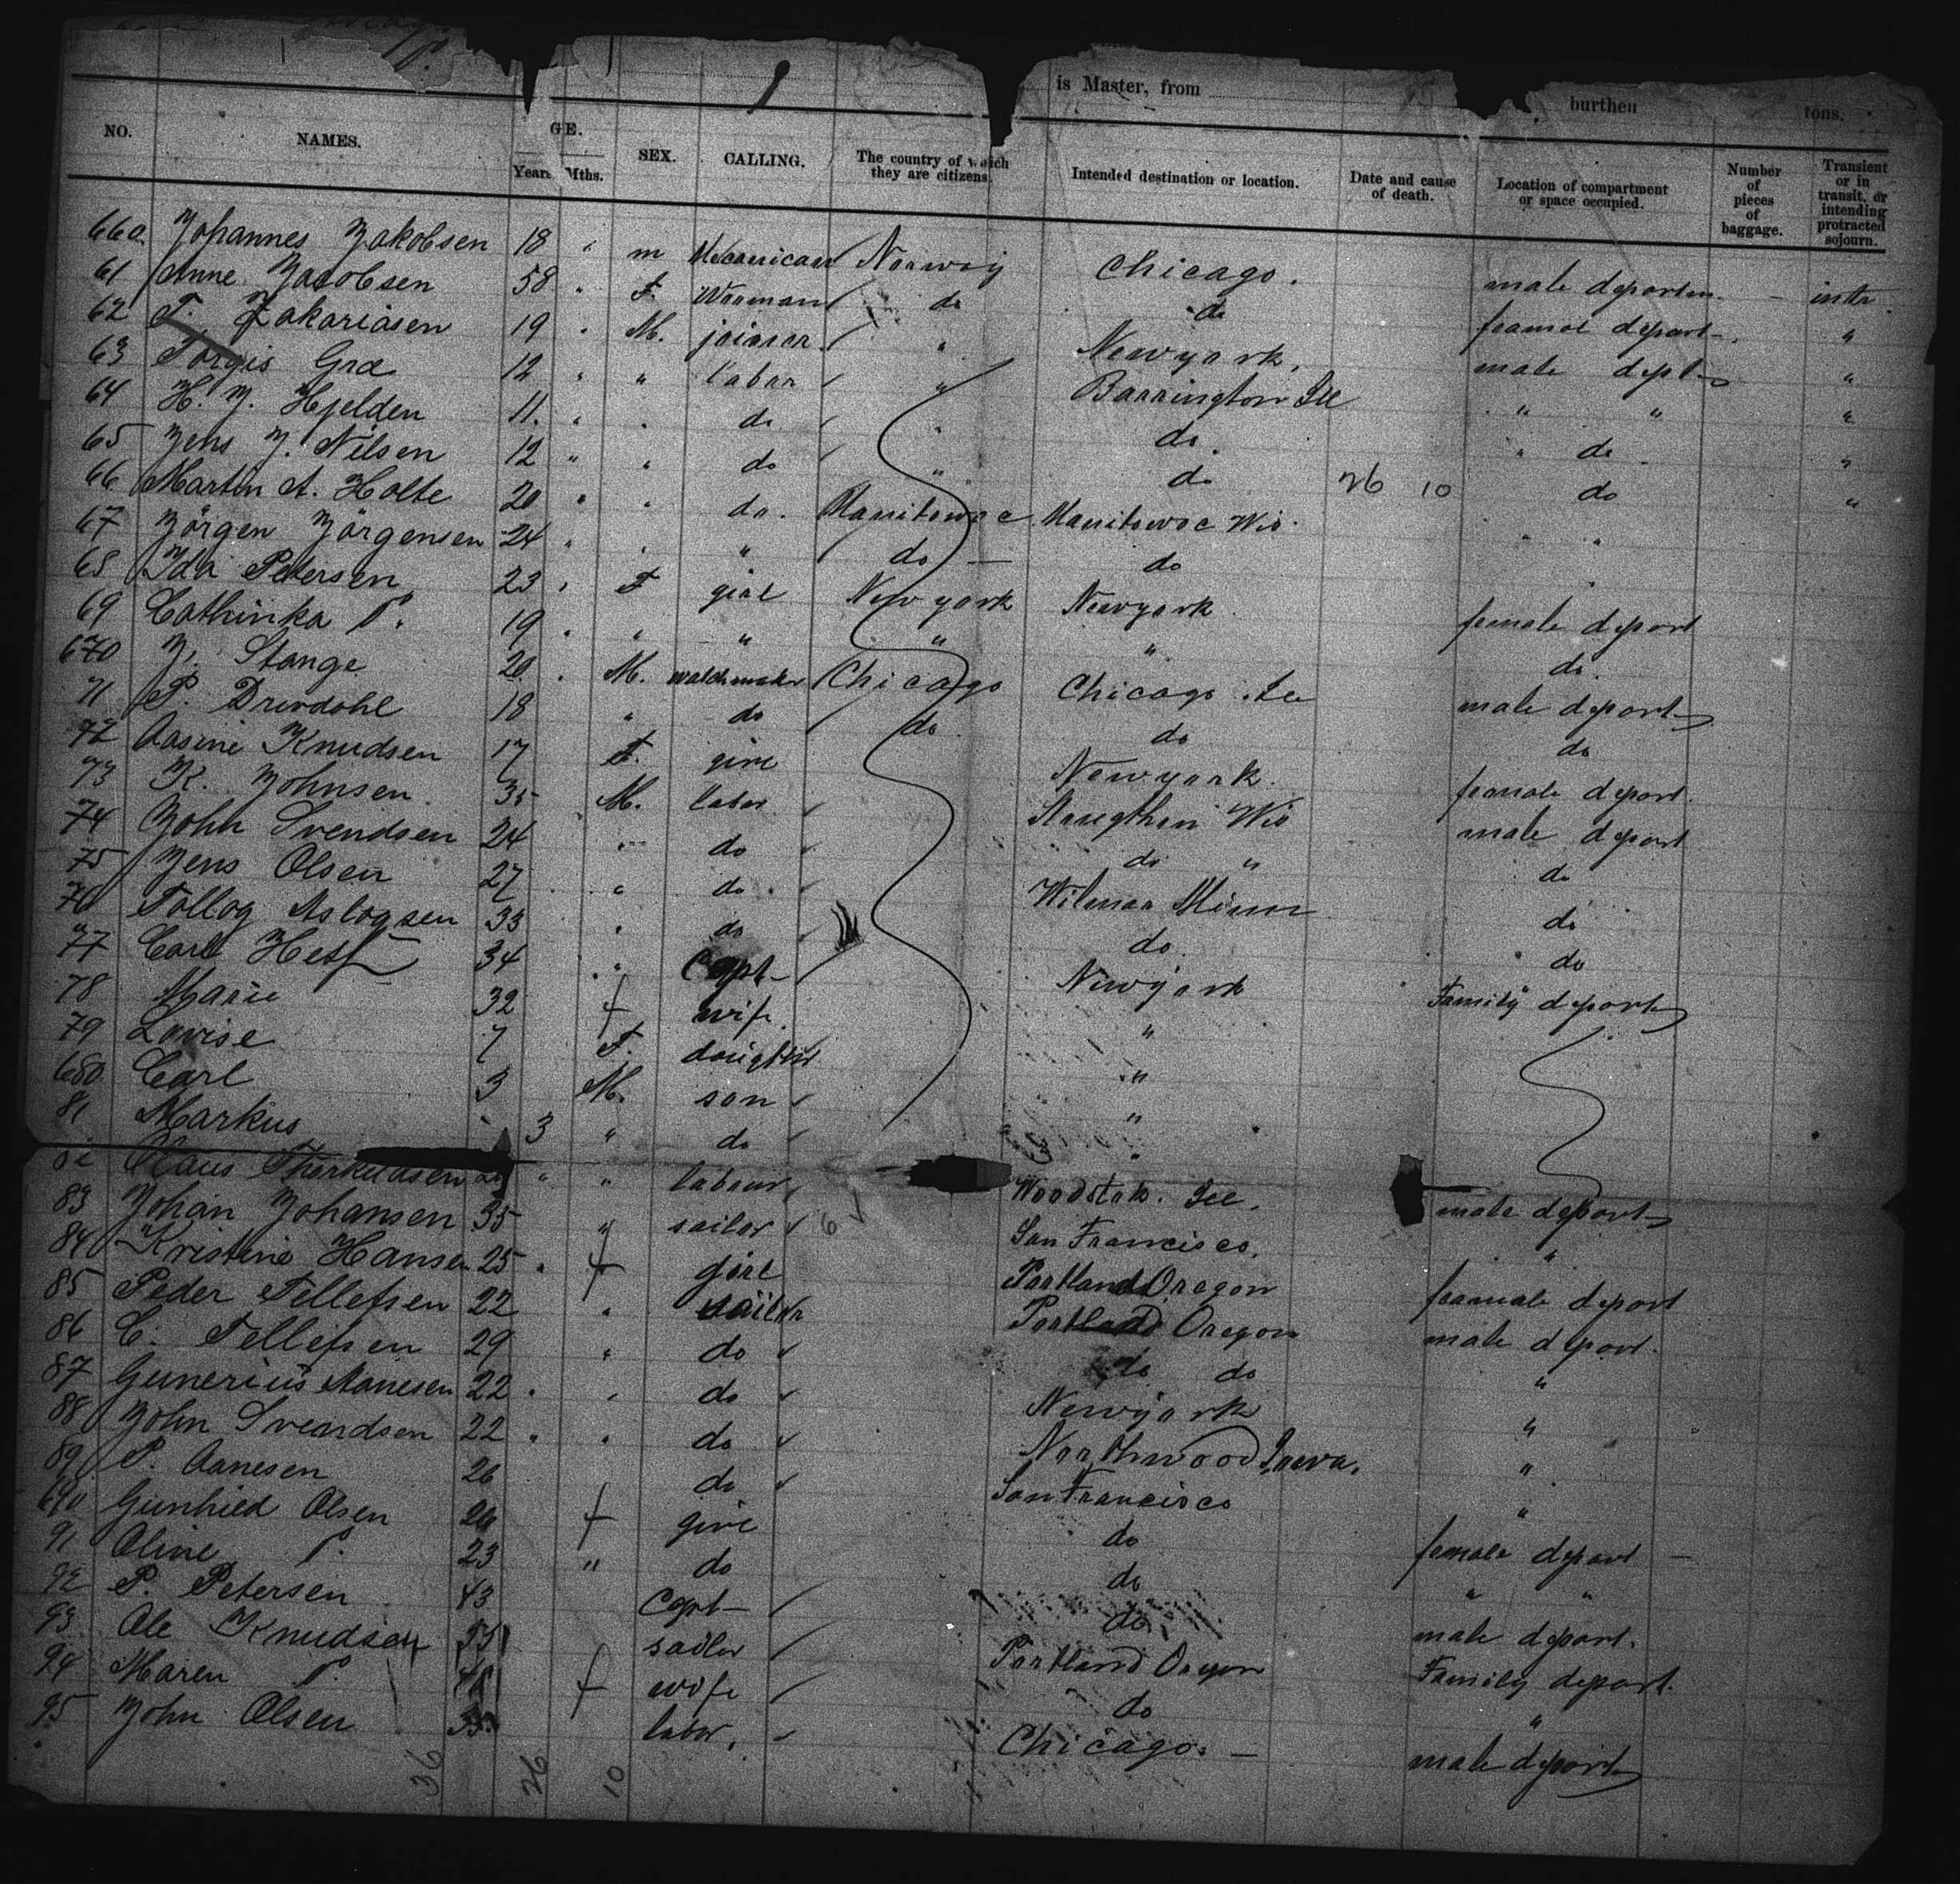 is Master, from burthen tons.
NO. NAMES. GE. Years Mths. SEX. CALLING. The country of which they are citizens. Intended destination or location. Date and cause of death. Location of compartment or space occupied. Number of pieces of baggage. Transient or in transit, or intending protracted sojourn.
660 Johannes Jakobsen 18 " m Norway Chicago. male
61 Anne Jacobsen 58 " F. Woman do do depart
62 T. Zakariasen 19 " M. joiner " Newyork. male dept "
63 Torgis Gra 12 " " labor " Barrington Ill " " "
64 H. J. Hjelden 11. " " do " do. " do "
65 Jens J. Nilsen 12 " " do " do do "
66 Martin A. Holte 20 " " do. Manitowoc Manitowoc Wis. " "
67 Jörgen Jörgensen 24 " " " do — do
68 Ida Petersen 23 " F girl New york Newyork female depart
69 Cathinka P. 19 " " " " " do.
670 J. Stange 20 " M. watchmaker Chicago Chicago Ill male depart
71 P. Drivdahl 18 " do do do do
72 Aasine Knudsen 17 F. girl Newyork. female depart.
73 K. Johnsen 35 M. labor Wis male depart
74 John Svendsen 24 " do do " do
75 Jens Olsen 27 " do Wilmar Minn do
76 Tollog Aslogsen 33 " do do. do
77 Carl 34 " Capt- Newyork Family depart
78 Marie 32 f wife "
79 Lovise 7 F. daughter "
680 Carl 3 M. son "
81 Markus 3 " do "
Olaus " " labour Woodstok. Ill. male depart
83 Johan Johansen 35 " sailor 6 San Francisco. "
84 Kristine Hansen 25 " f girl Portland Oregon female depart
85 Peder Tellefsen 22 " sailor Portland Oregon male depart.
86 C. Tellefsen 29 " do do do "
87 Gunerius Aanesen 22 " " do Newyork "
88 John Sveardsen 22 " " do Northwood Iowa. "
89 P. Aanesen 26 do San Francisco "
690 Gunhild Olsen 26 f girl do female depart —
91 Oline P. 23 " do do " "
92 P. Petersen 43 Capt- do male depart.
93 Ole Knudsen sailor Portland Oregon Family depart.
94 Maren P. f wife do "
95 John Olsen 35 labor. Chicago. — male depart
36 26 10